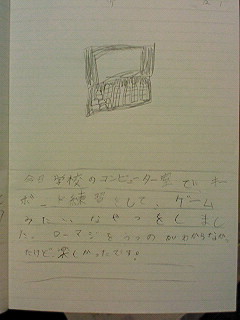 今日学校のコンピューター室でキー
ボード練習をして、ゲーム
みたいなやつをしまし
た。ローマジをうつのがわからなかっ
たけど、楽しかったです!